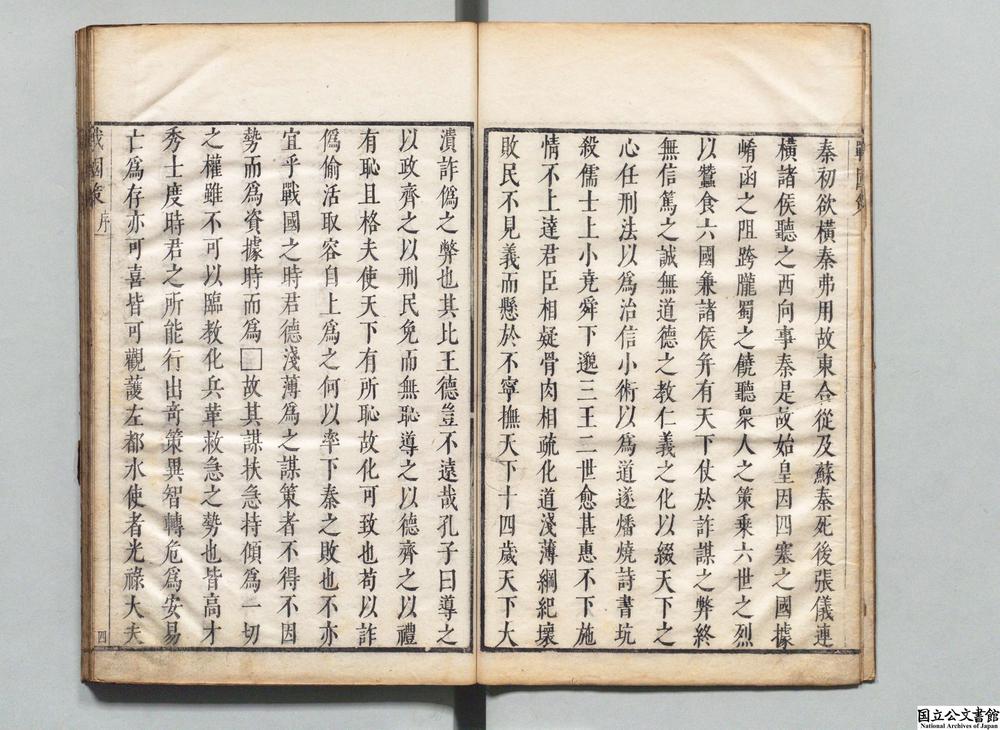 秦初欲橫秦弗用故東合從及蘇秦死後張儀連
橫諸侯聽之西向事秦是故始皇因四塞之國據
崤函之阻跨隴蜀之饒聽衆人之策乘六世之烈
以蠶食六國兼諸侯并有天下仗於詐謀之弊終
無信篤之誠無道德之教仁義之化以綴天下之
心任刑法以爲治信小術以爲道遂燔燒詩書坑
殺儒士上小堯舜下邈三王二世愈甚惠不下施
情不上達君臣相疑骨肉相疏化道淺薄綱紀壞
敗民不見義而懸於不寧撫天下十四歲天下大
潰詐僞之弊也其比王德豈不遠哉孔子曰導之
以政齊之以刑民免而無恥導之以德齊之以禮
有恥且格夫使天下有所恥故化可致也苟以詐
僞偷活取容自上爲之何以率下秦之敗也不亦
宜乎戰國之時君德淺薄爲之謀策者不得不因
勢而爲資據時而爲□故其謀扶急持傾爲一切
之權雖不可以臨教化兵革救急之勢也皆高才
秀士度時君之所能行出奇策異智轉危爲安易
亡爲存亦可喜皆可觀護左都水使者光祿大夫
戰國策
序
四
国立公文書館
National Archives of Japan